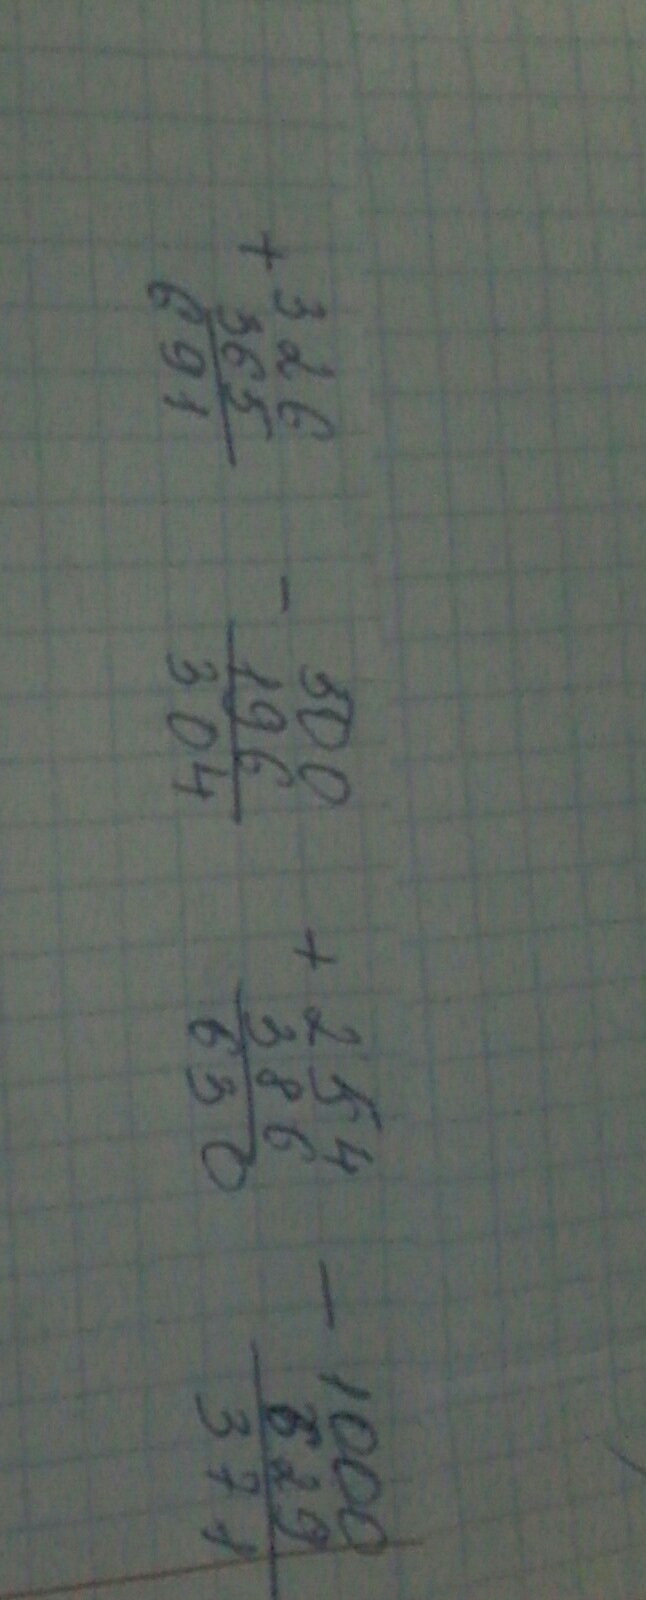 + 326
365
691
− 500
196
304
+ 254
386
630
− 1000
629
371